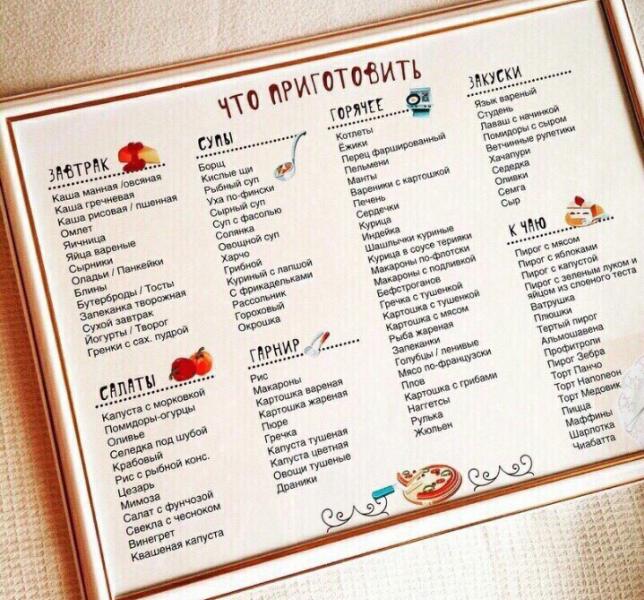 ЧТО ПРИГОТОВИТЬ
ЗАВТРАК
Каша манная /овсяная
Каша гречневая
Каша рисовая / пшенная
Омлет
Яичница
Яйца вареные
Сырники
Оладьи / Панкейки
Блины
Бутерброды / Тосты
Запеканка творожная
Сухой завтрак
Йогурты / Творог
Гренки с сах. пудрой
САЛАТЫ
Капуста с морковкой
Помидоры-огурцы
Оливье
Селедка под шубой
Крабовый
Рис с рыбной конс.
Цезарь
Мимоза
Салат с фунчозой
Свекла с чесноком
Винегрет
Квашеная капуста
СУПЫ
Борщ
Кислые щи
Рыбный суп
Уха по-фински
Сырный суп
Суп с фасолью
Солянка
Овощной суп
Харчо
Грибной
Куриный с лапшой
С фрикадельками
Рассольник
Гороховый
Окрошка
ГАРНИР
Рис
Макароны
Картошка вареная
Картошка жареная
Пюре
Гречка
Капуста тушеная
Капуста цветная
Овощи тушеные
Драники
ГОРЯЧЕЕ
Котлеты
Ёжики
Перец фаршированный
Пельмени
Манты
Вареники с картошкой
Печень
Сердечки
Курица
Индейка
Шашлычки куриные
Курица в соусе терияки
Макароны по-флотски
Макароны с подливкой
Бефстроганов
Гречка с тушенкой
Картошка с тушенкой
Картошка с мясом
Рыба жареная
Запеканки
Голубцы / ленивые
Мясо по-французски
Плов
Картошка с грибами
Наггетсы
Рулька
Жюльен
ЗАКУСКИ
Язык вареный
Студень
Лаваш с начинкой
Помидоры с сыром
Ветчинные рулетики
Хачапури
Седедка
Оливки
Семга
Сыр
К ЧАЮ
Пирог с мясом
Пирог с яблоками
Пирог с капустой
Пирог с зеленым луком и
яйцом из слоеного теста
Ватрушка
Плюшки
Тертый пирог
Альмошавена
Профитроли
Пирог Зебра
Торт Панчо
Торт Наполеон
Торт Медовик
Пицца
Маффины
Шарлотка
Чиабатта